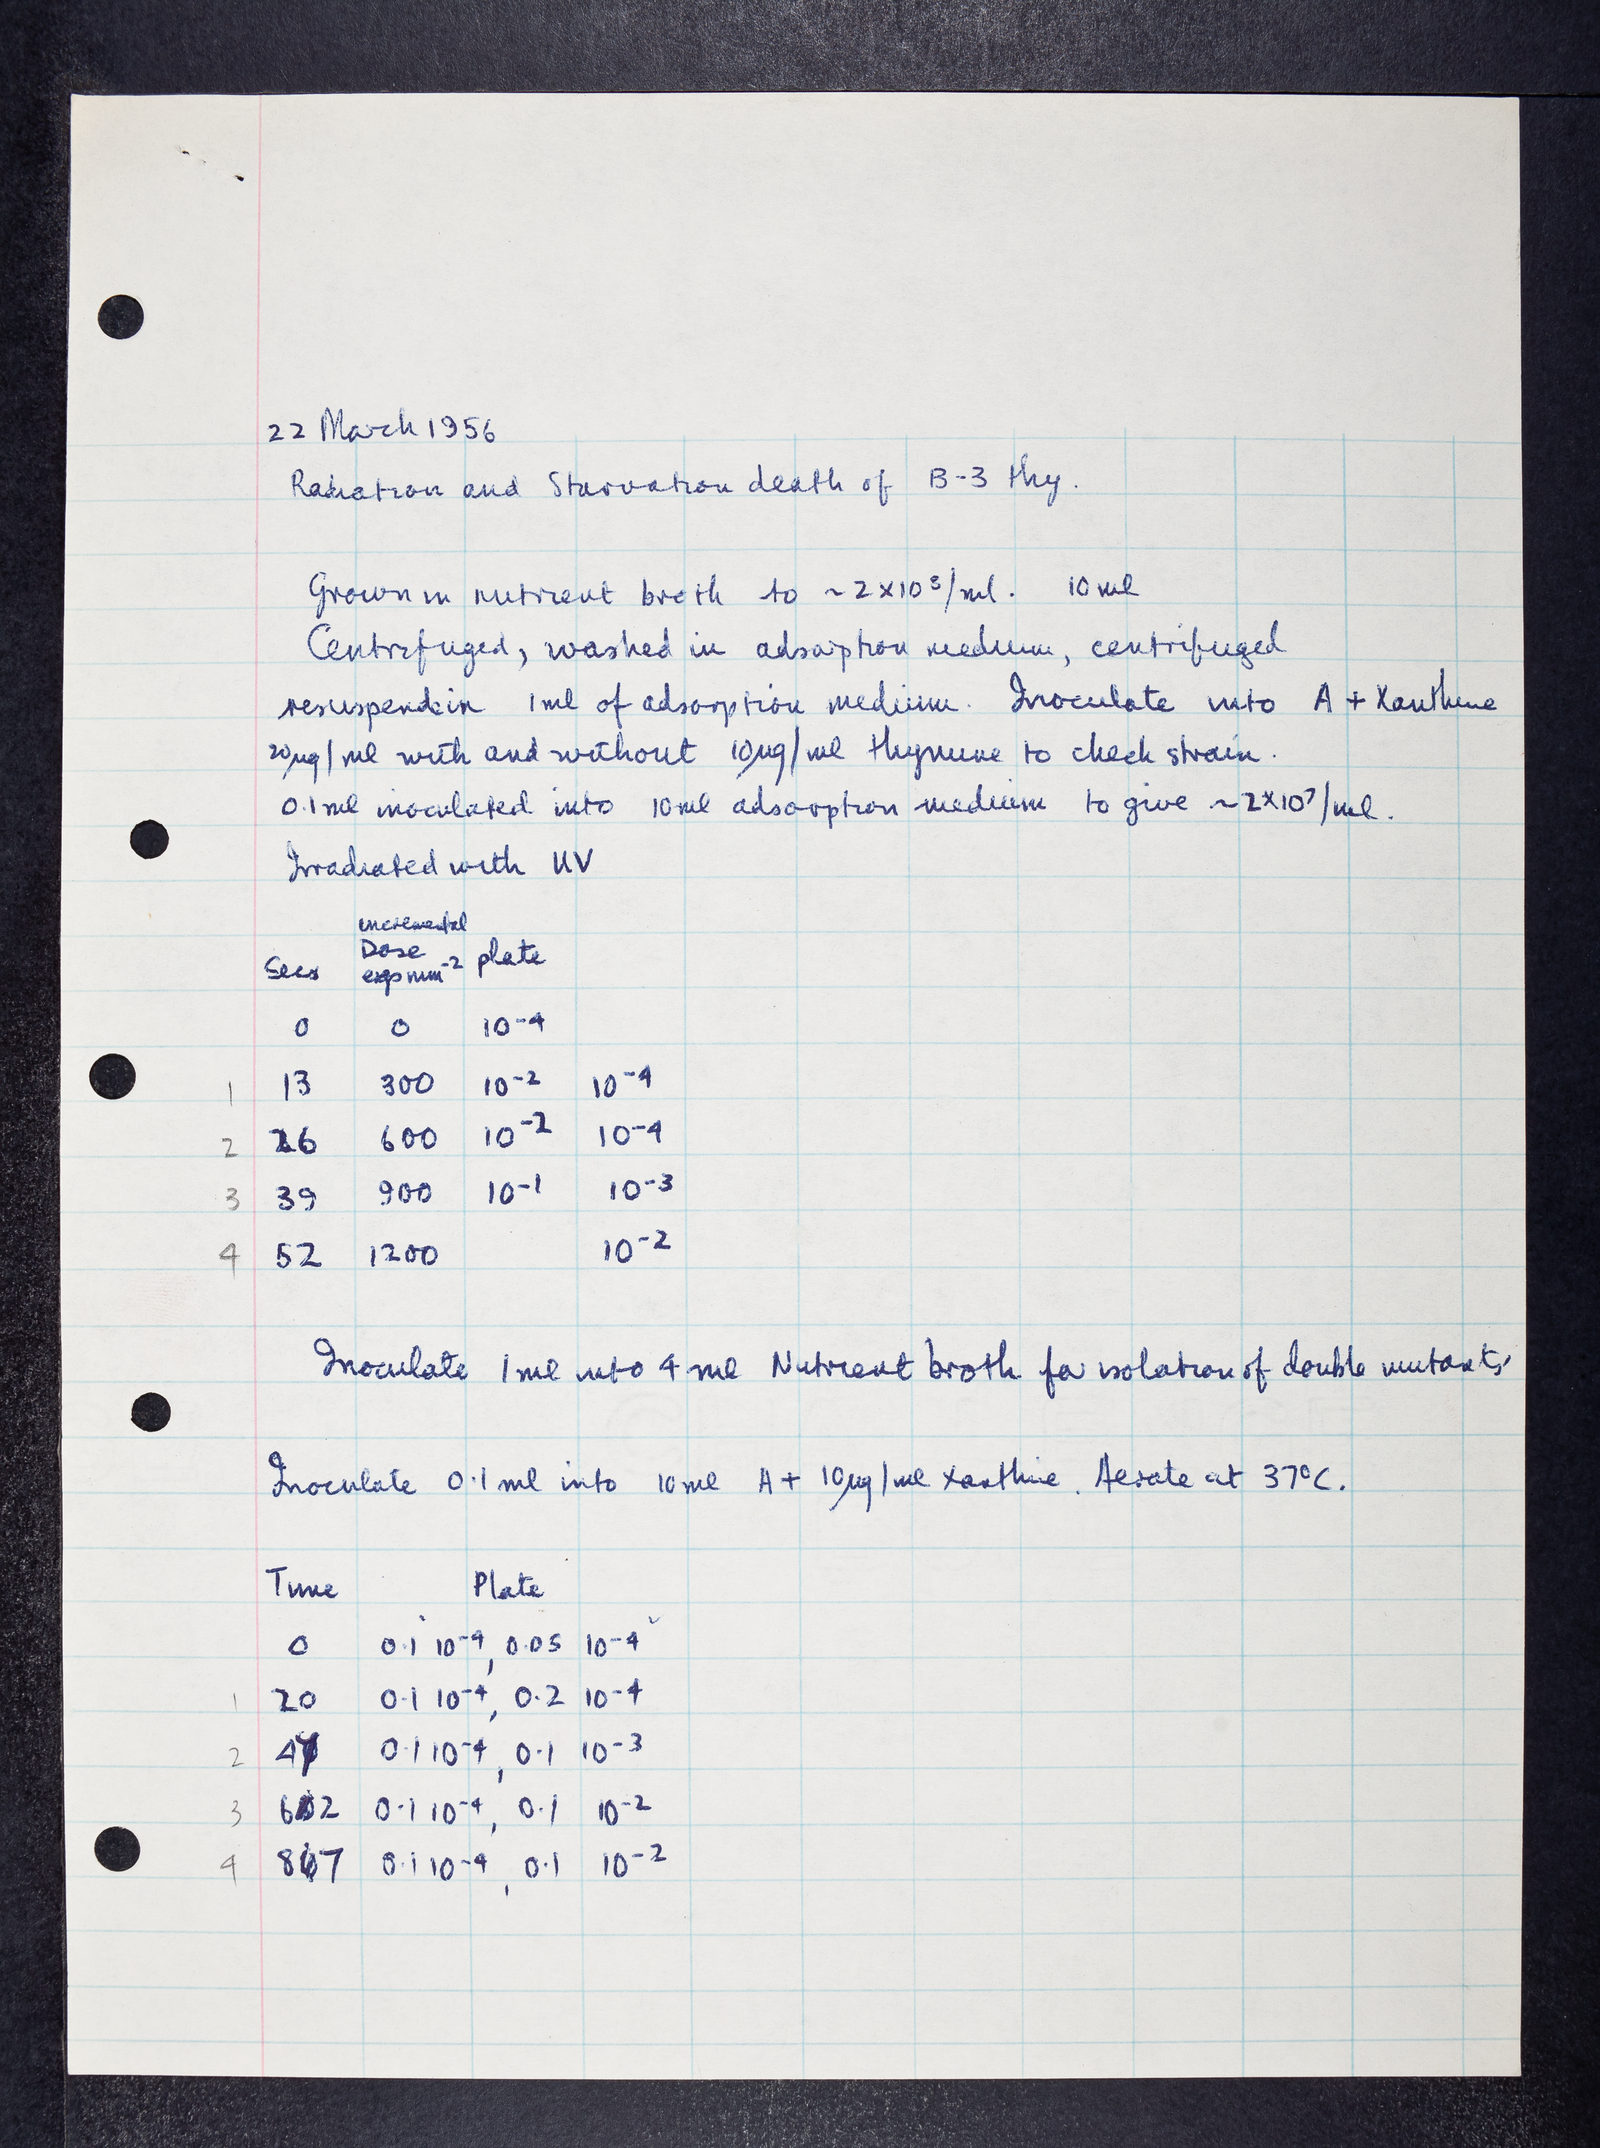 22 March 1956
Radiation and Starvation death of B-3 thy.
Grown in nutrient broth to ~2×10⁸/ml. 10 ml
Centrifuged, washed in adsorption medium, centrifuged
resuspend in 1 ml of adsorption medium. Inoculate into A + Xanthine
20µg/ml with and without 10µg/ml thymine to check strain.
0.1 ml inoculated into 10 ml adsorption medium to give ~2×10⁷/ml.
Irradiated with UV
incremental
Secs Dose plate
ergs mm⁻²
0 0 10⁻⁴
1 13 300 10⁻² 10⁻⁴
2 26 600 10⁻² 10⁻⁴
3 39 900 10⁻¹ 10⁻³
4 52 1200 10⁻²
Inoculate 1 ml into 4 ml Nutrient broth for isolation of double mutants.
Inoculate 0.1 ml into 10 ml A + 10µg/ml Xanthine. Aerate at 37°C.
Time Plate
0 0.1 10⁻⁴, 0.05 10⁻⁴
1 20 0.1 10⁻⁴, 0.2 10⁻⁴
2 0.1 10⁻⁴, 0.1 10⁻³
3 62 0.1 10⁻⁴, 0.1 10⁻²
4 87 0.1 10⁻⁴, 0.1 10⁻²